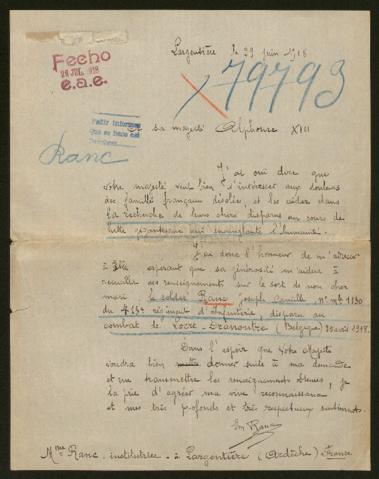 Fecho
26 JUL. 1918
e.a.e.
Largentière le 29 juin 1918
79793
Pedir informes
Que se hace
A sa majesté Alphonse XIII
Ranc
J'ai ouï dire que
votre majesté veut bien s'intéresser aux douleurs
des famille française désolée, et les aider dans
la recherche de leurs chers disparus au cours de
lutte gigantesque qui ensanglante l'humanité.
J'ai donc l'honneur de m'adresser
à Elle espérant que sa générosité m'aidera à
recueillir des renseignements sur le sort de mon cher
mari le soldat Ranc Joseph Camille N° mle 1130
du 413e régiment d'Infanterie, disparu au
combat de Locre-Dranoutre (Belgique) avril 1918.
Dans l'espoir que Votre Majesté
voudra bien donner suite à ma demande
et me transmettre les renseignements obtenus, je
la prie d'agréer ma vive reconnaissance
et mes très profonds et très respectueux sentiments.
Ranc
Mme Ranc institutrice à Largentière (Ardèche) France